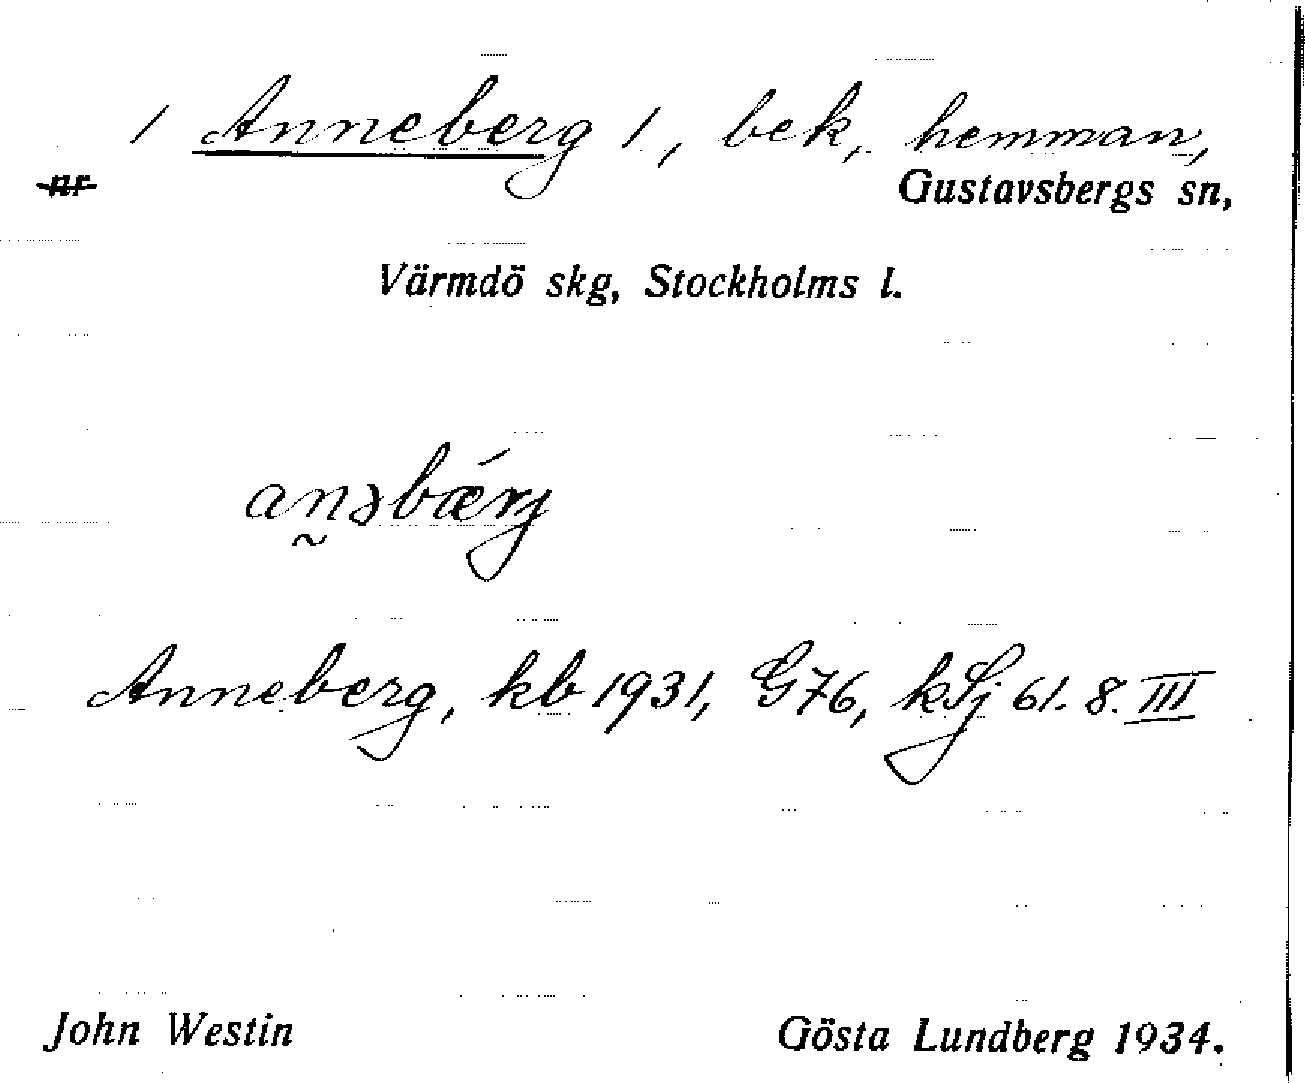 / Anneberg /, bek, hemman,
nr Gustavsbergs sn,
Värmdö skg, Stockholms l.
anəbǽrj
Anneberg, kb 1931, G76, kSj 61. 8. III
John Westin Gösta Lundberg 1934.